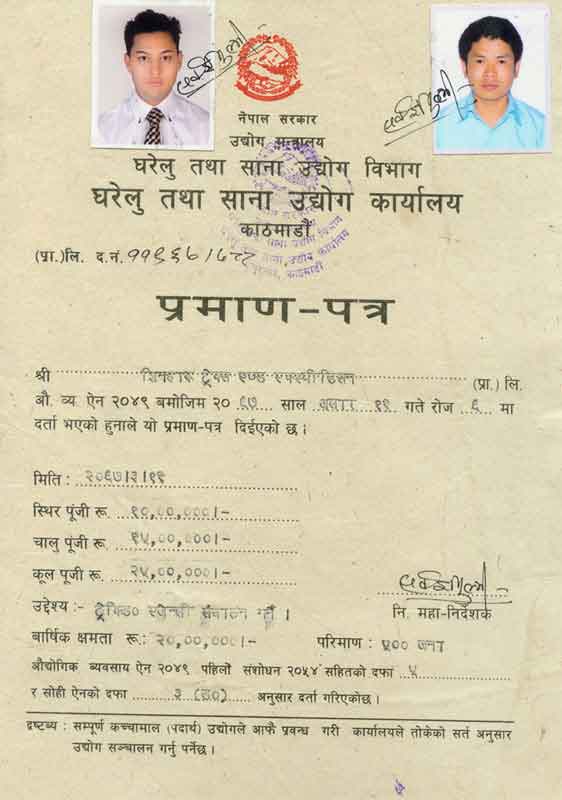 नेपाल सरकार
उद्योग मन्त्रालय
घरेलु तथा साना उद्योग विभाग
घरेलु तथा साना उद्योग कार्यालय
काठमाडौं
(प्रा.)लि. द.नं.
प्रमाण-पत्र
श्री ट्रेक्स एण्ड एक्स्पीडिसन (प्रा.) लि.
औ. व्य. ऐन २०४९ बमोजिम २० ६७ साल असार १९ गते रोज ६ मा
दर्ता भएको हुनाले यो प्रमाण-पत्र दिईएको छ ।
मिति : २०६७।३।१९
स्थिर पूंजी रू. १०,००,०००।-
चालु पूंजी रू. १५,००,०००।-
कूल पूजी रू. २५,००,०००।-
उद्देश्य :- ट्रेकिङ एजेन्सी संचालन गर्ने ।
नि. महा-निर्देशक
बार्षिक क्षमता रू.: २०,००,०००।- परिमाण : ५०० जना
औद्योगिक ब्यवसाय ऐन २०४९ पहिलो संशोधन २०५४ सहितको दफा ५
र सोही ऐनको दफा ३ अनुसार दर्ता गरिएकोछ ।
द्रष्टब्य : सम्पूर्ण कच्चामाल (पदार्थ) उद्योगले आफै प्रवन्ध गरी कार्यालयले तोकेको सर्त अनुसार
उद्योग सञ्चालन गर्नु पर्नेछ ।